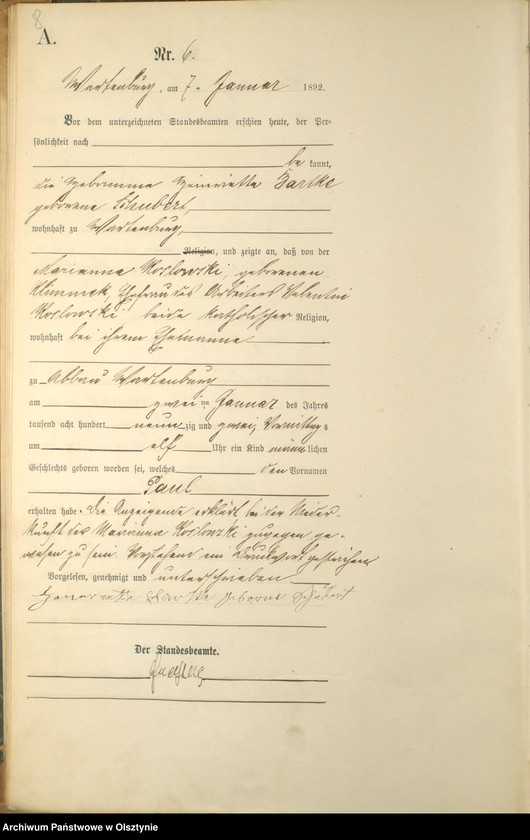 8
A.
Nr. 6.
Wartenburg, am 7. Januar 1892.
Vor dem unterzeichneten Standesbeamten erschien heute, der Per-
sönlichkeit nach
be kannt,
die Hebamme Henriette Bartke
geborene Schubert,
wohnhaft zu Wartenburg,
Religion, und zeigte an, daß von der
Marianna Koslowski, geborenen
Klimmek, Ehefrau des Arbeiters Valentin
Koslowski beide katholischer Religion,
wohnhaft bei ihrem Ehemanne
zu Abbau Wartenburg
am zwei ten Januar des Jahres
tausend acht hundert neun zig und zwei, Vormittags
um elf Uhr ein Kind männ lichen
Geschlechts geboren worden sei, welches den Vornamen
Paul
erhalten habe. Die Anzeigende erklärt bei der Nieder-
kunft der Marianna Koslowski zugegen ge-
wesen zu sein. Vorstehend ein Druckwort gestrichen
Vorgelesen, genehmigt und unterschrieben
Henriette Bartke geborne Schubert
Der Standesbeamte.
Archiwum Państwowe w Olsztynie